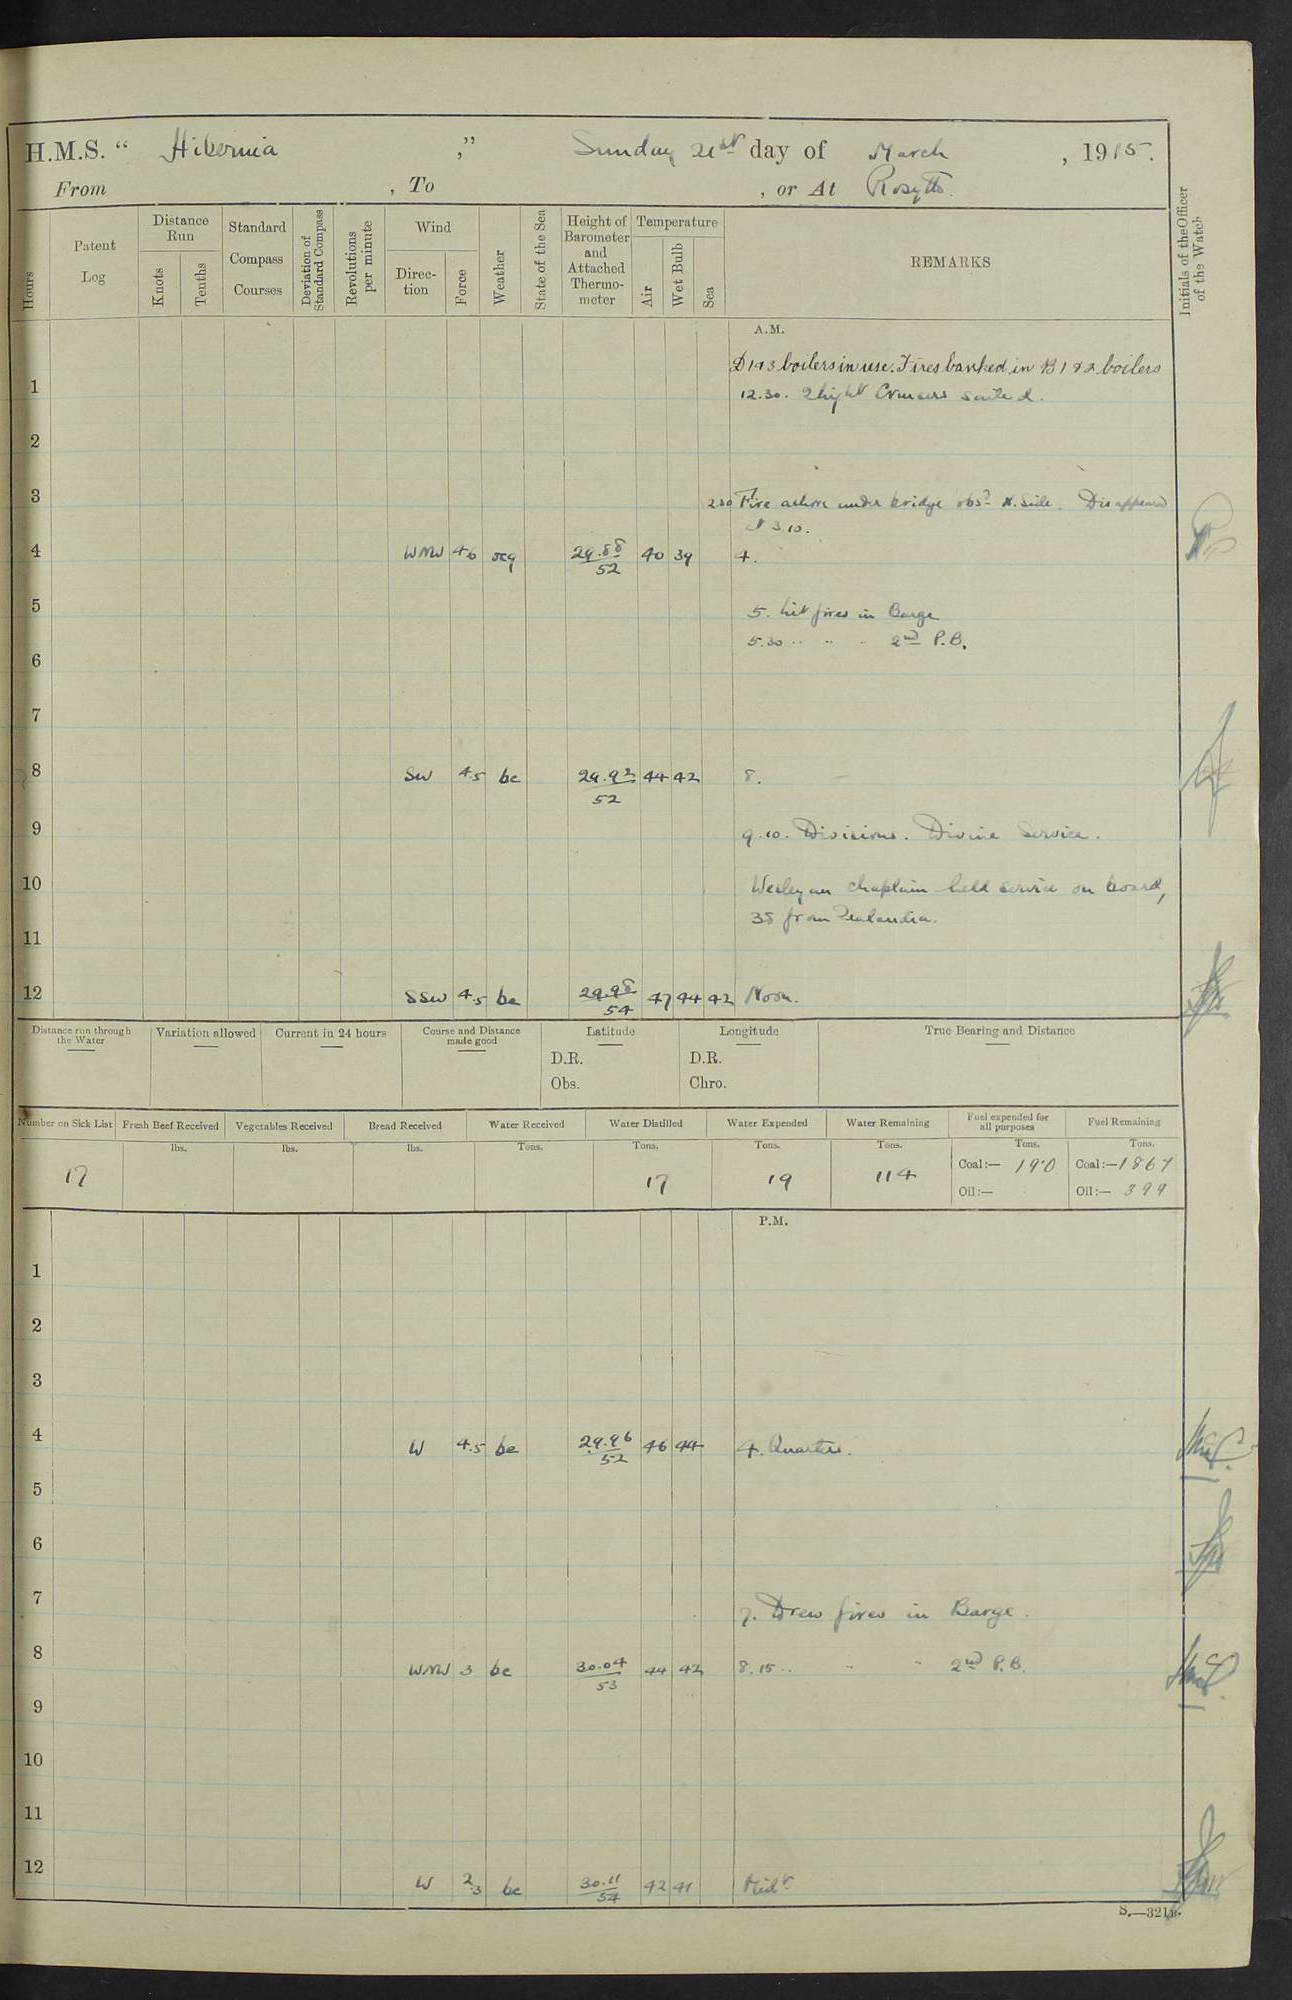 H.M.S. “ Hibernia ,” Sunday 21st day of March , 1915.
From , To , or At Rosyth.
Hours
Patent Log
Distance Run
Knots
Tenths
Standard Compass Courses
Deviation of Standard Compass
Revolutions per minute
Wind
Direc-tion
Force
Weather
State of the Sea
Height of Barometer and Attached Thermo-meter
Temperature
Air
Wet Bulb
Sea
REMARKS
Initials of the Officer of the Watch
A.M.
D 1 & 3 boilers in use. Fires banked in B 1 & 2 boilers
1
12.30. 2 light Cruisers sailed.
2
3
2.30 Fire ashore under bridge obsd N. Side. Disappeared
at 3.10.
4 WNW 4.6 ocq 29.88/52 40 39 4.
5
5. Lit fires in Barge
5.30 " " " 2nd P.B.
6
7
8 SW 4.5 bc 29.92/52 44 42 8.
9
9.10. Divisions. Divine Service.
10
Wesleyan chaplain held service on board,
38 from Zealandia.
11
12 SSW 4.5 bc 29.98/54 47 44 42 Noon.
Distance run through the Water
Variation allowed
Current in 24 hours
Course and Distance made good
Latitude
D.R.
Obs.
Longitude
D.R.
Chro.
True Bearing and Distance
Number on Sick List
Fresh Beef Received
Vegetables Received
Bread Received
Water Received
Water Distilled
Water Expended
Water Remaining
Fuel expended for all purposes
Fuel Remaining
lbs. lbs. lbs. Tons. Tons. Tons. Tons. Tons. Tons.
17 17 19 114
Coal:— 19.0 Coal:— 1867
Oil:— Oil:— 399
P.M.
1
2
3
4 W 4.5 bc 29.96/52 46 44 4. Quarters.
5
6
7
7. Drew fires in Barge.
8 WNW 3 bc 30.04/53 44 42 8.15 " " " 2nd P.B.
9
10
11
12 W 2.3 bc 30.11/54 42 41 Midt.
S.—321